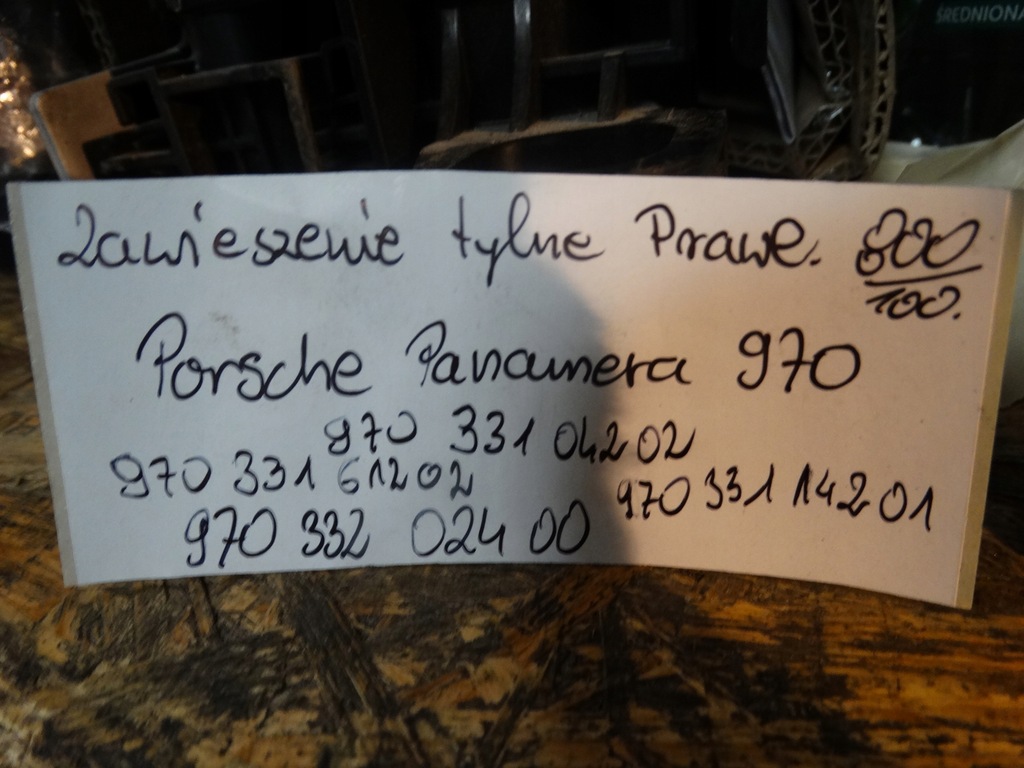 ŚREDNIONA
Zawieszenie tylne Prawe. 800/100.
Porsche Panamera 970
970 331 042 02
970 331 612 02
970 331 142 01
970 332 024 00